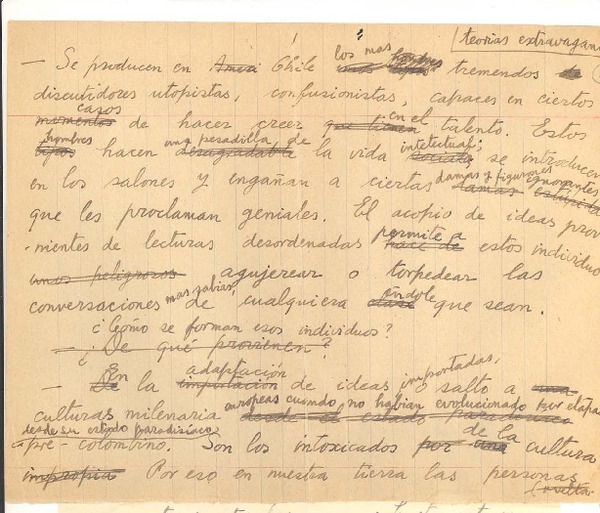 teorias extravagan
— Se producen en Ameri Chile los mas tremendos de
discutidores utopistas, confusionistas, capaces en ciertos
casos
momentos de hacer creer que tienen en el talento. Estos
hombres una pesadilla de intelectual;
tipos hacen desagradable la vida social; se introducen
damas y figurones ignorantes
en los salones y engañan a ciertas damas estupida
que les proclaman geniales. El acopio de ideas prov
permite a
-nientes de lecturas desordenadas hace de estos individuo
unos peligrosos agujerear o torpedear las
mas sabias, índole
conversaciones de cualquiera clase que sean.
¿Como se forman esos individuos?
— ¿De qué provienen?
En adaptación importadas,
— De la importación de ideas o salto a una
europeas cuando no habian evolucionado por etapa
culturas milenaria desde el estado paradisiaco
desde su estado paradisíaco de la
pre-colombino. Son los intoxicados por una cultura
impropia Por eso en nuestra tierra las personas